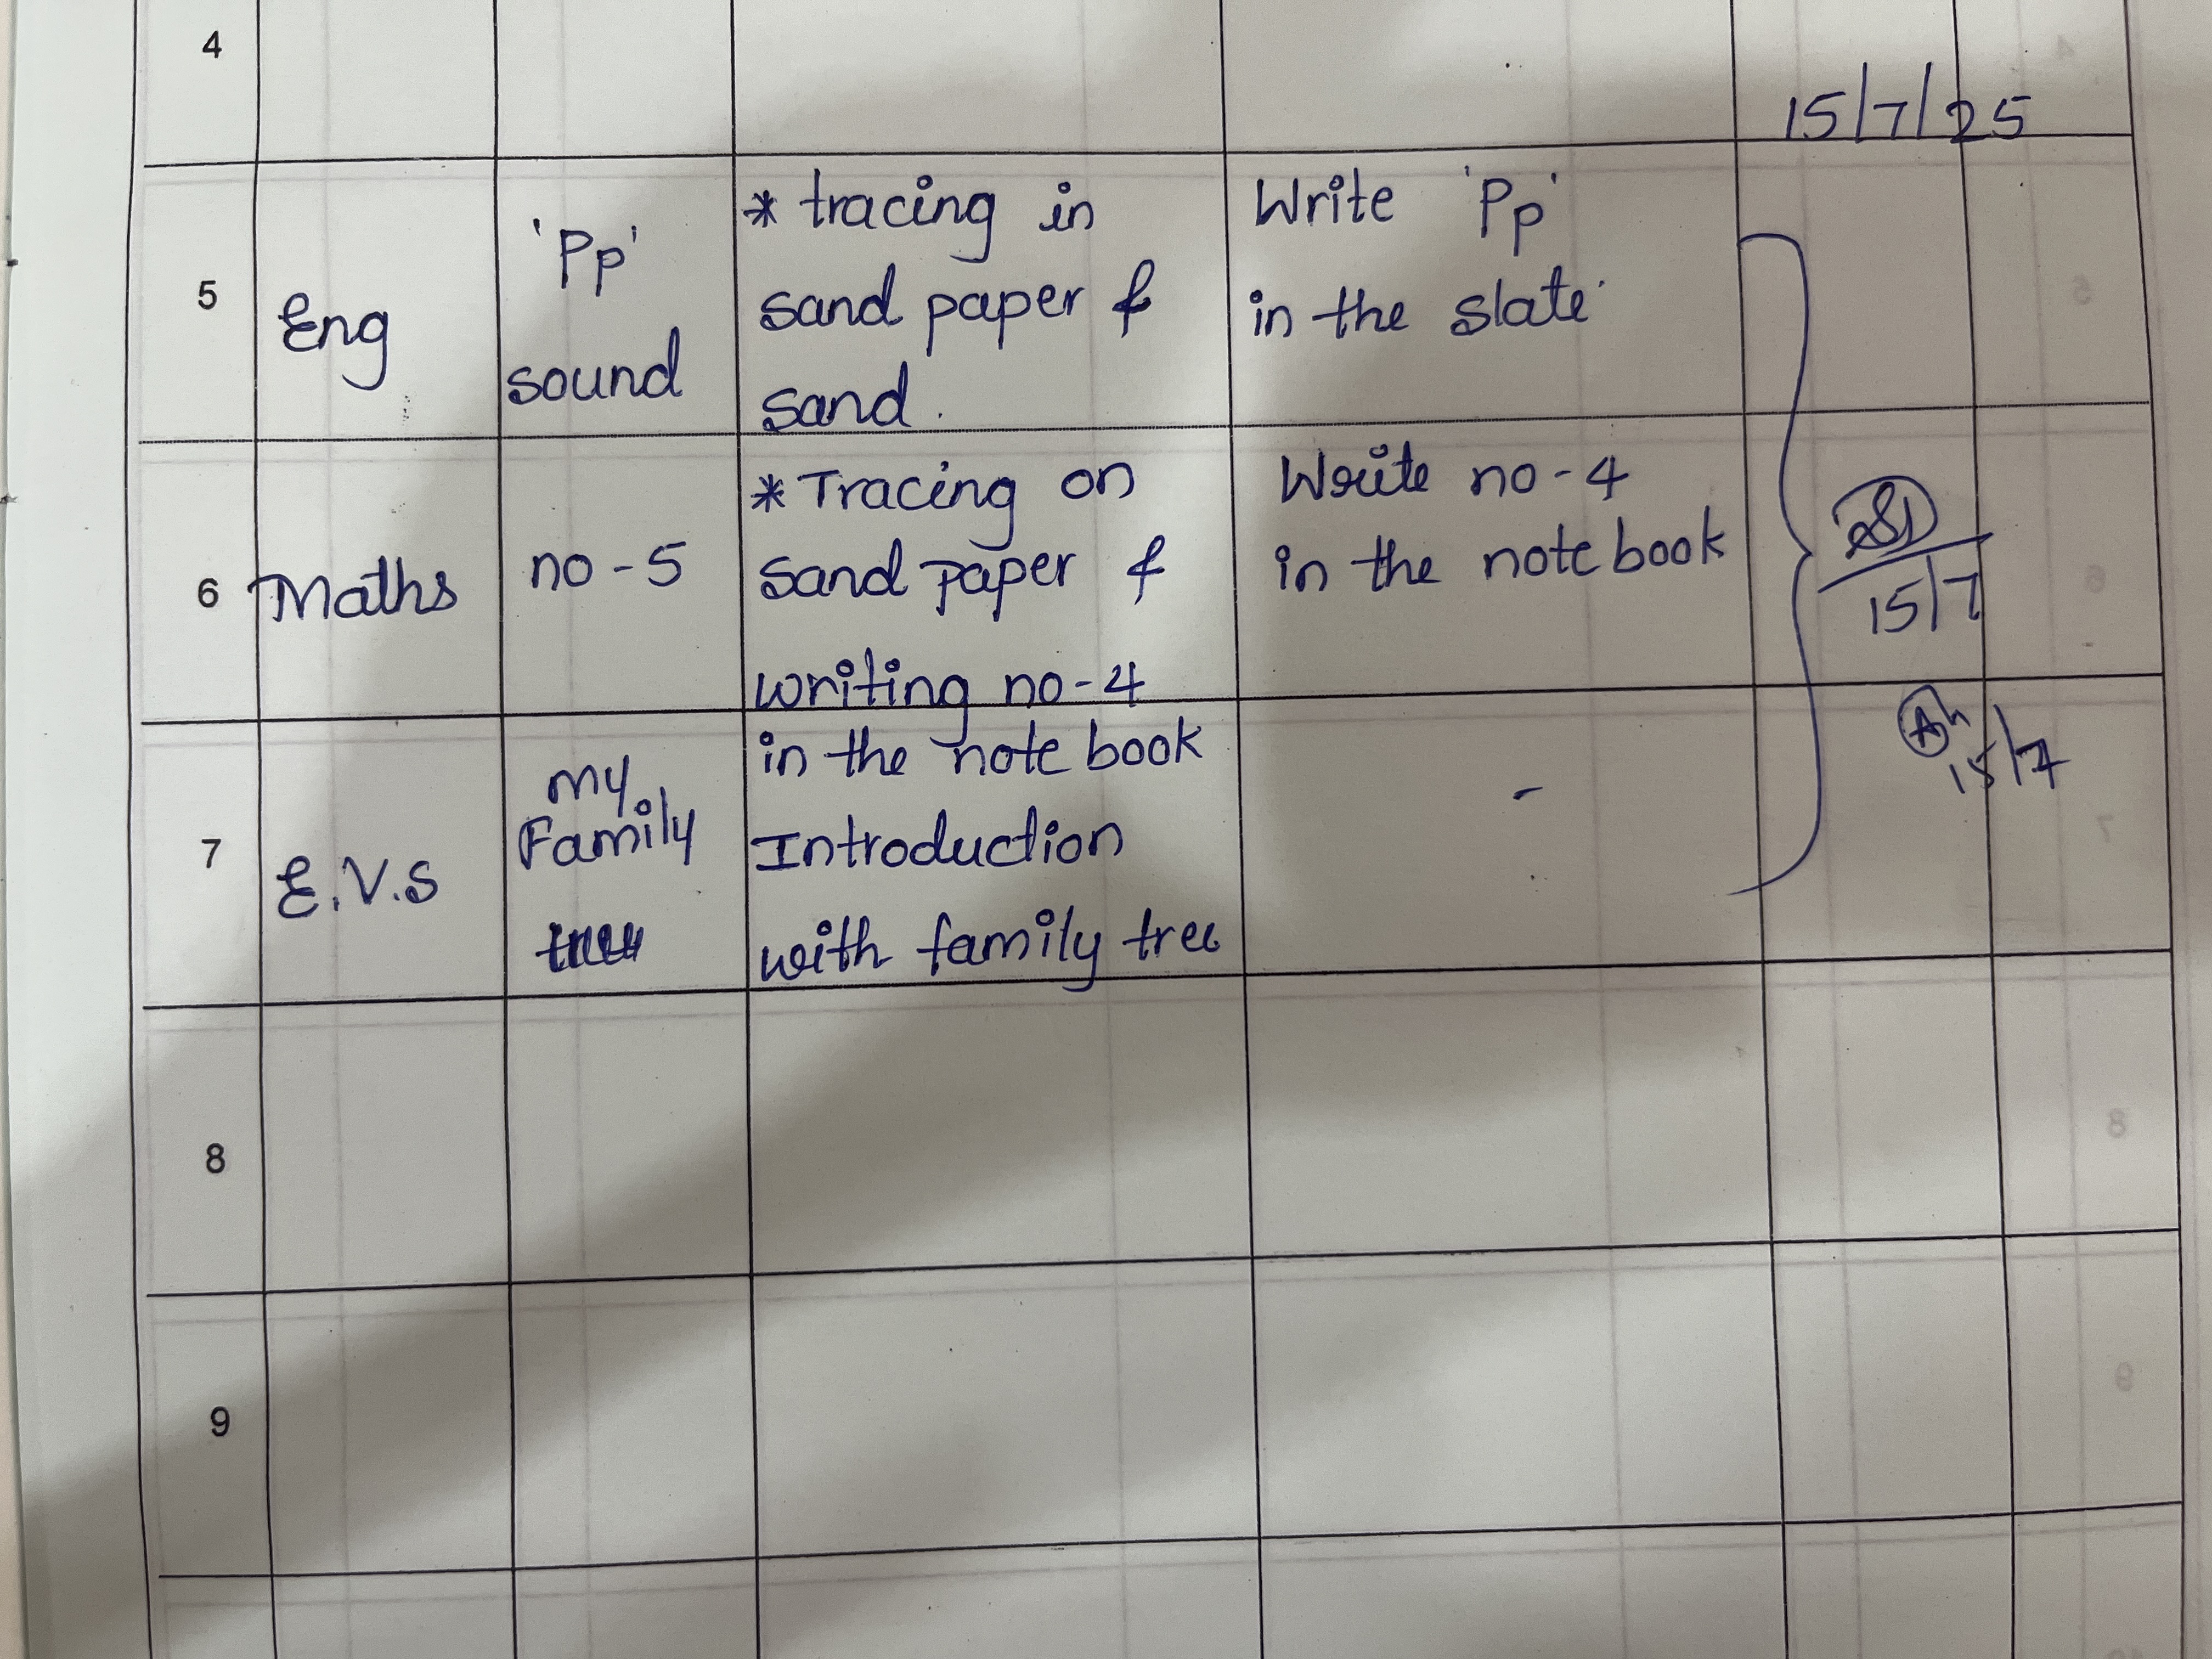 4
15/7/25
5
Eng
'Pp'
sound
* tracing in
sand paper &
sand.
Write 'Pp'
in the slate
6
Maths
no-5
* Tracing on
sand paper &
writing no-4
in the note book
Write no-4
in the note book
15/7
15/7
7
E.V.S
my
Family
Introduction
with family tree
-
8
9